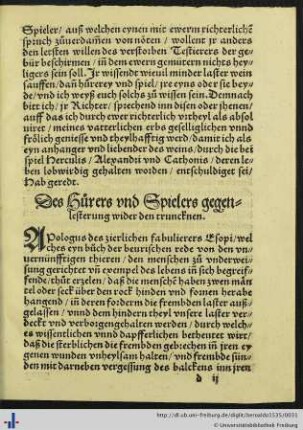 Spieler / auß welchen eynen mit ewerm richterlichē
spruch zůuerdamen von nöten / wollent jr anders
den letsten willen des verstorben Testierers der ge-
bür beschirmen / in dem ewern gemütern nichts hey-
ligers sein soll. Jr wissendt wieuil minder laster wein
sauffen / dan hůrerey vnd spiel / jre eyns oder sie bey-
de / vnd ich weyß euch solchs zů wissen sein. Demnach
bitt ich / jr Richter / sprechend inn disen oder jhenen /
auff das ich durch ewer richterlich vrtheyl als absol
uiret / meines vatterlichen erbs geselliglichen vnnd
frölich geniesse vnd theylhafftig werd / damit ich als
eyn anhanger vnd liebender des weins / durch die bei
spiel Herculis / Alexandri vnd Cathonis / deren le-
ben lobwirdig gehalten worden / entschuldiget sei /
Hab geredt.
Des Hůrers vnd Spielers gegen-
lesterung wider den trunckneп.
APologus des zierlichen fabulierers Esopi / wel
ches eyn bůch der beurischen rede von den vn-
uernünfftigen thieren / den menschen zů vnderwei-
sung gerichtet vn̄ exempel des lebens in sich begreif-
fende / thůt erzelen / daß die menschē haben zwen män
tel oder seck über den rock hinden vnd fornen herabe
hangend / in deren forderm die frembden laster auß-
gelassen / vnnd dem hindern theyl vnsere laster ver-
deckt vnd verborgen gehalten werden / durch welch-
es wissentlichen vnnd dapfferlichen betheutet wirt /
daß die sterblichen die frembden gebrechen in jren ey
genen wunden vnheylsam halten / vnd frembde sün-
den mit darneben vergessung des balckens inn jren
d ij
http://dl.ub.uni-freiburg.de/diglit/beroaldo1535/0031
© Universitätsbibliothek Freiburg